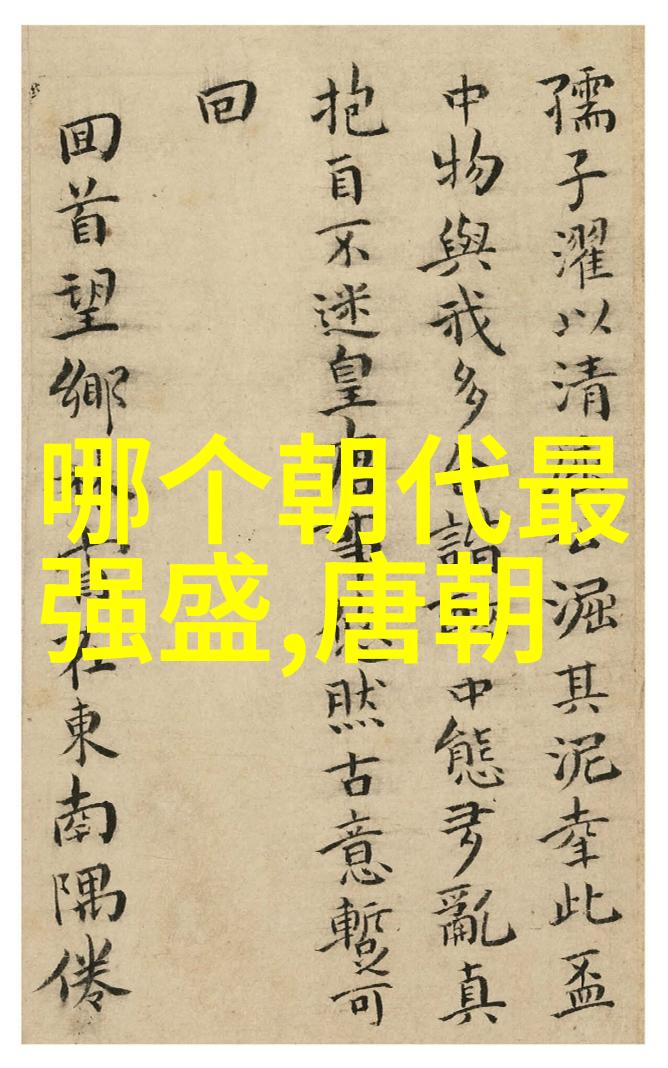 哪个朝代最
强盛,唐朝
孺子濯以清
淈其泥奉此盃
中物與我多
中態多亂真
抱自不迷皇
然古意暫可
回
回首望鄉
在東南隅倦